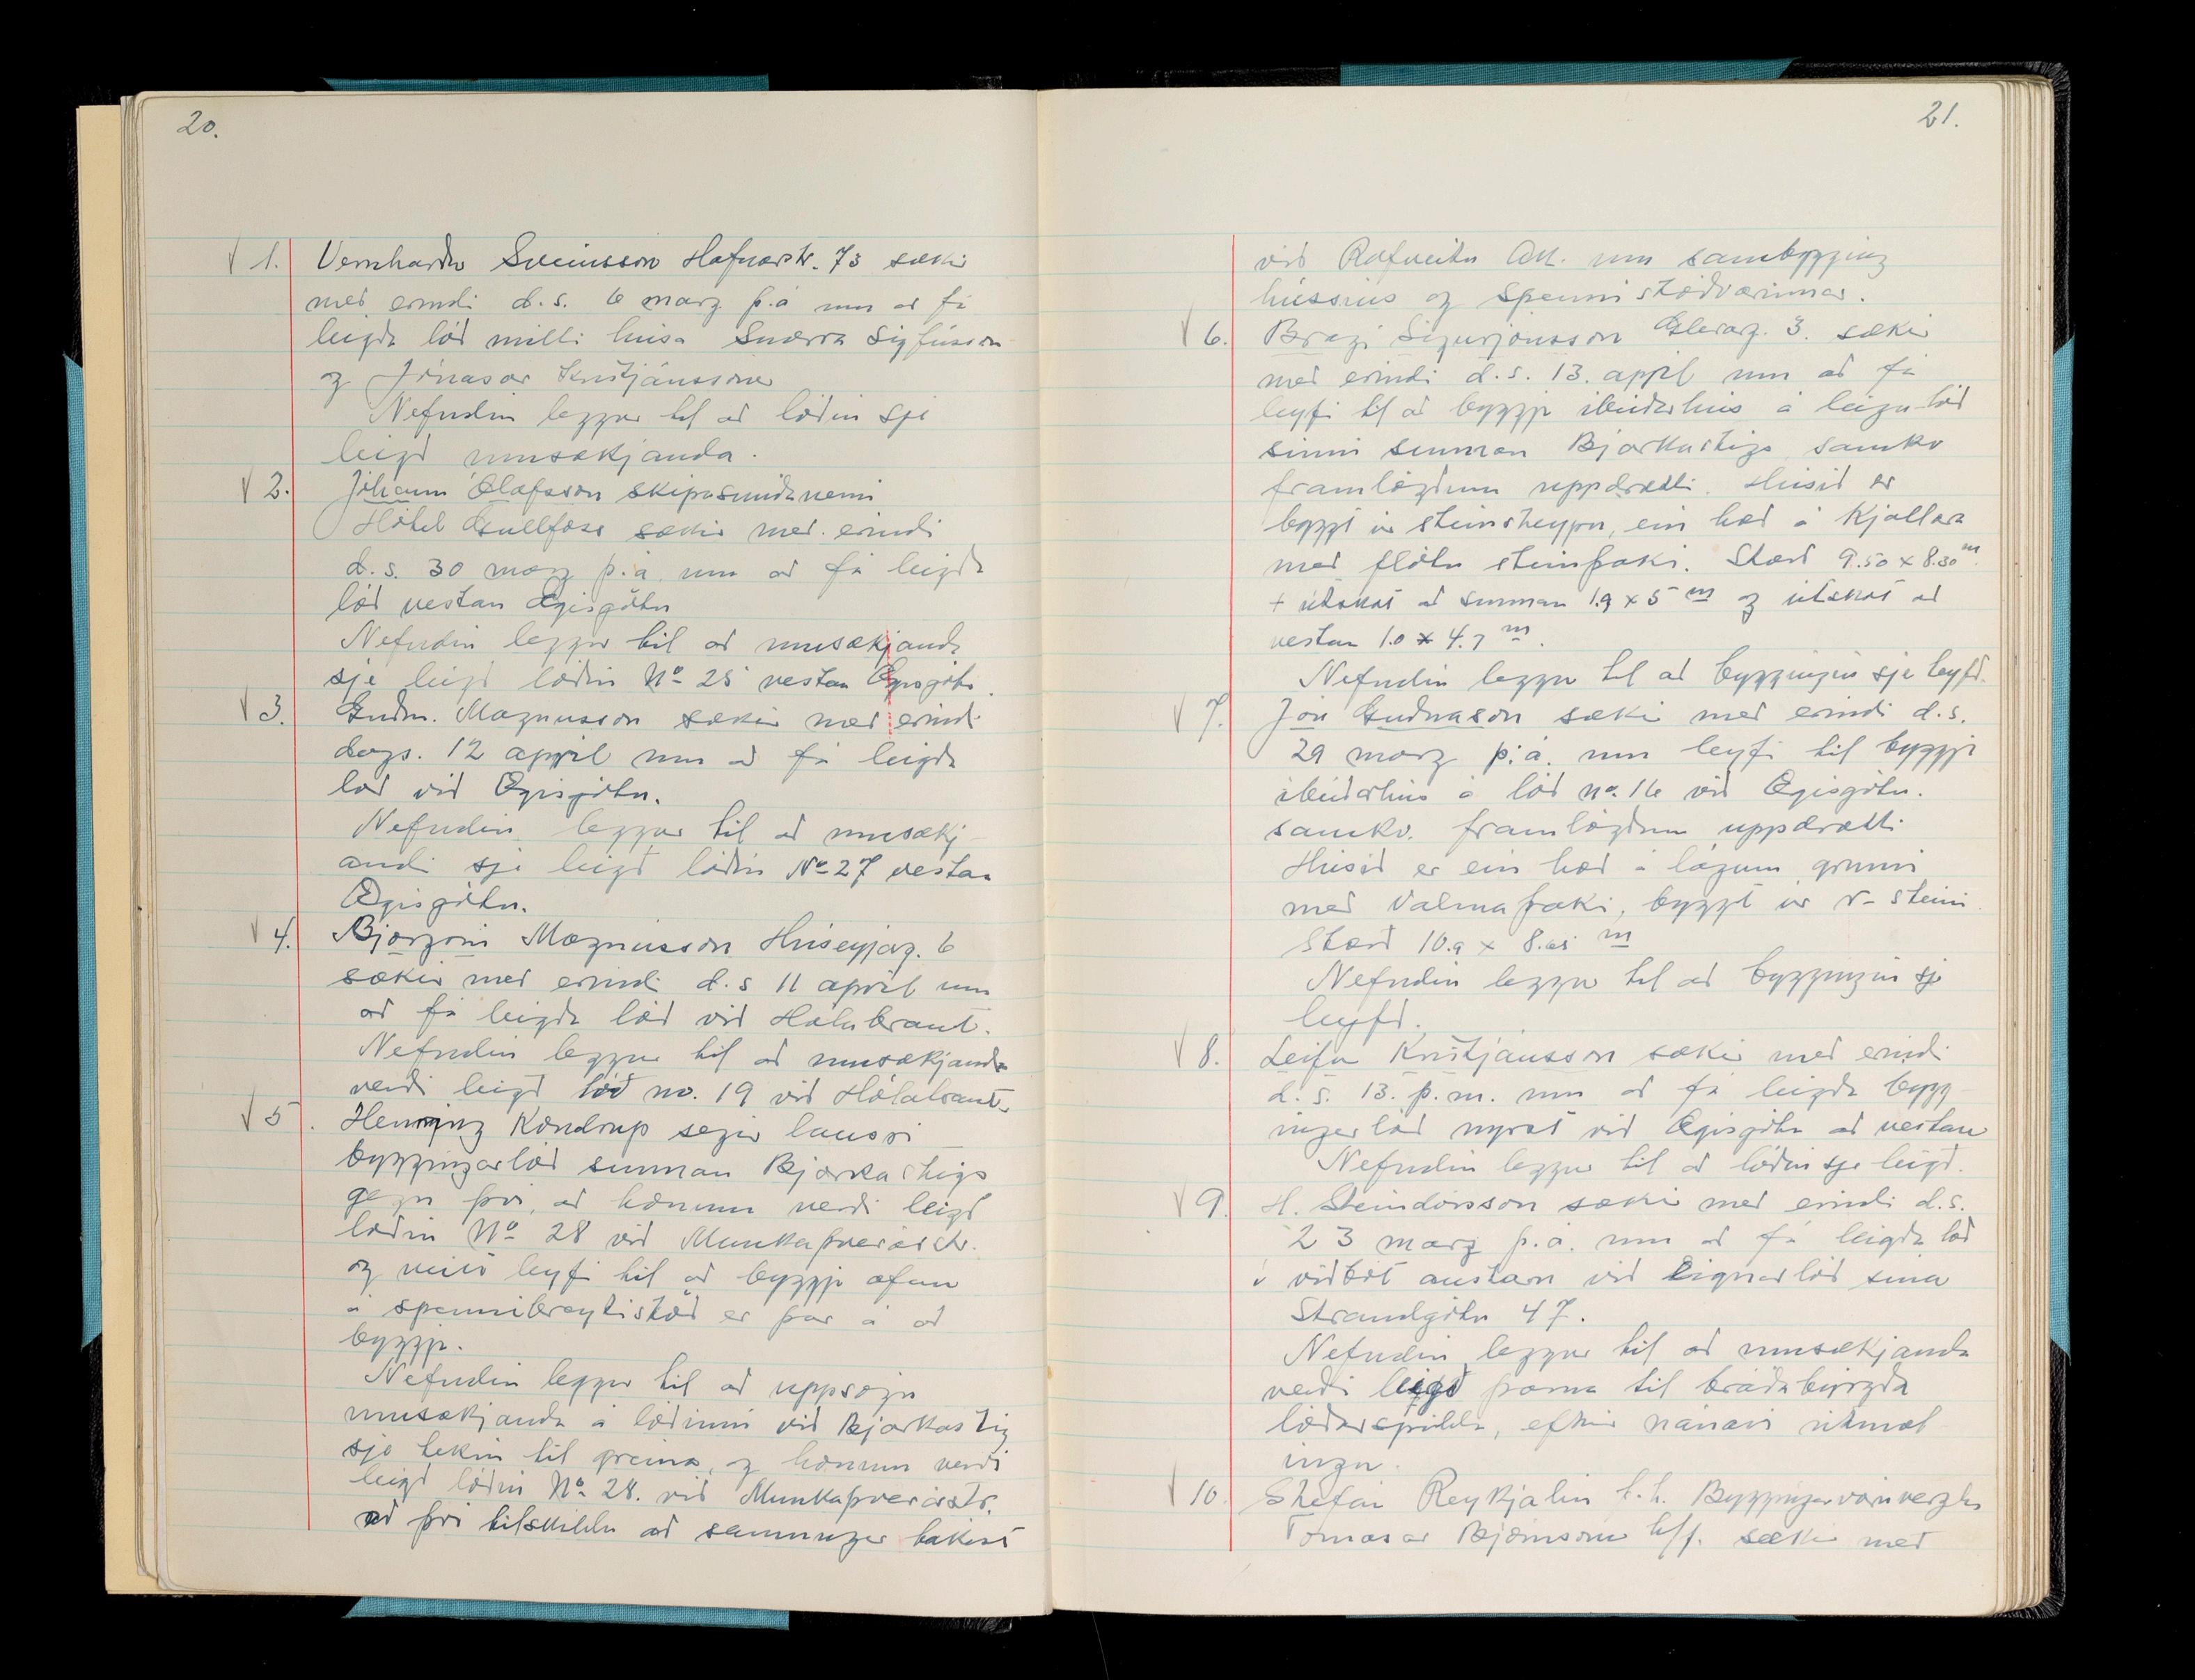 20.
√ 1. Vernharður Sveinsson Hafnarstr. 73 sækir
með erindi d.s. 6 marz þ.á um að fá
leigða lóð milli húsa Snorra Sigfússonar
og Jónasar Kristjánssonar
Nefndin leggur til að lóðin sje
leigð umsækjanda.
√ 2. Jóhann Ólafsson skipasmíðanemi
Hótel Gullfoss sækir með erindi
d.s. 30 marz þ.á. um að fá leigða
lóð vestan Ægisgötu
Nefndin leggur til að umsækjanda
sje leigð lóðin No 25 vestan Ægisgötu.
√ 3. Guðm. Magnusson sækir með erindi
dags. 12 appril um að fá leigða
lóð við Ægisgötu.
Nefndin leggur til að umsækj-
andi sje leigð lóðin No 27 vestan
Ægisgötu.
√ 4. Björgvin Magnússon Húseyjarg. 6
sækir með erindi d.s 11 apríl um
að fá leigða lóð við Holabraut.
Nefndin leggur til að umsækjanda
verði leigð lóð no. 19 við Hólabraut.
√ 5. Henning Kondrup segir lausri
byggingarlóð sunnan Bjarkastigs
gegn því, að honum verði leigð
lóðin No 28 við Munkaþverárstr.
og veitt leyfi til að byggja ofan
á spennibreytistöð er þar á að
byggja.
Nefndin leggur til að uppsögn
umsækjanda á lóðinni við Bjarkastig
sje tekin til greina, og honum verði
leigð lóðin No 28. við Munkaþverárstr.
að því tilskildu að samningar takist
21.
við Rafveitu Ak. um sambygging
hússins og spennistöðvarinnar.
√ 6. Bragi Sigurjónsson Glerárg. 3. sækir
með erindi d.s. 13. appríl um að fá
leyfi til að byggja íbúðarhús á leigulóð
sinni sunnan Bjarkastigs samkv
framlögðum uppdrætti. Húsið er
byggt úr steinsteypu, ein hæð á kjallara
með flötu steinþaki. Stærð 9.50 x 8.30 m.
+ útskot að sunnan 1.9 x 5 m og útskot að
vestan 1.0 x 4.7 m.
Nefndin leggur til að byggingin sje leyfð.
√ 7. Jón Guðnason sækir með erindi d.s.
29 marz þ.á. um leyfi til byggja
íbúðarhús á lóð no. 16 við Ægisgötu.
samkv. framlögðum uppdrætti
Húsið er ein hæð á lágum grunni
með valmaþaki, byggt úr r-steini.
Stærð 10.9 x 8.65 m
Nefndin leggur til að byggingin sje
leyfð.
√ 8. Leifur Kristjánsson sækir með erindi
d.s. 13. þ.m. um að fá leigða bygg-
ingarlóð nyrst við Ægisgötu að vestan
Nefndin leggur til að lóðin sje leigð.
√ 9. H. Steindórsson sækir með erindi d.s.
23 marz þ.á. um að fá leigða lóð
í viðbót austan við eignarlóð sína
Strandgötu 47.
Nefndin leggur til að umsækjanda
verði leigð þarna til bráðabirgða
lóðarspilda, eftir nánari útmæl-
ingu.
√ 10. Stefán Reykjalin f.h. Byggingarvöruverzlun
Tómasar Björnssonar h/f. sækir með